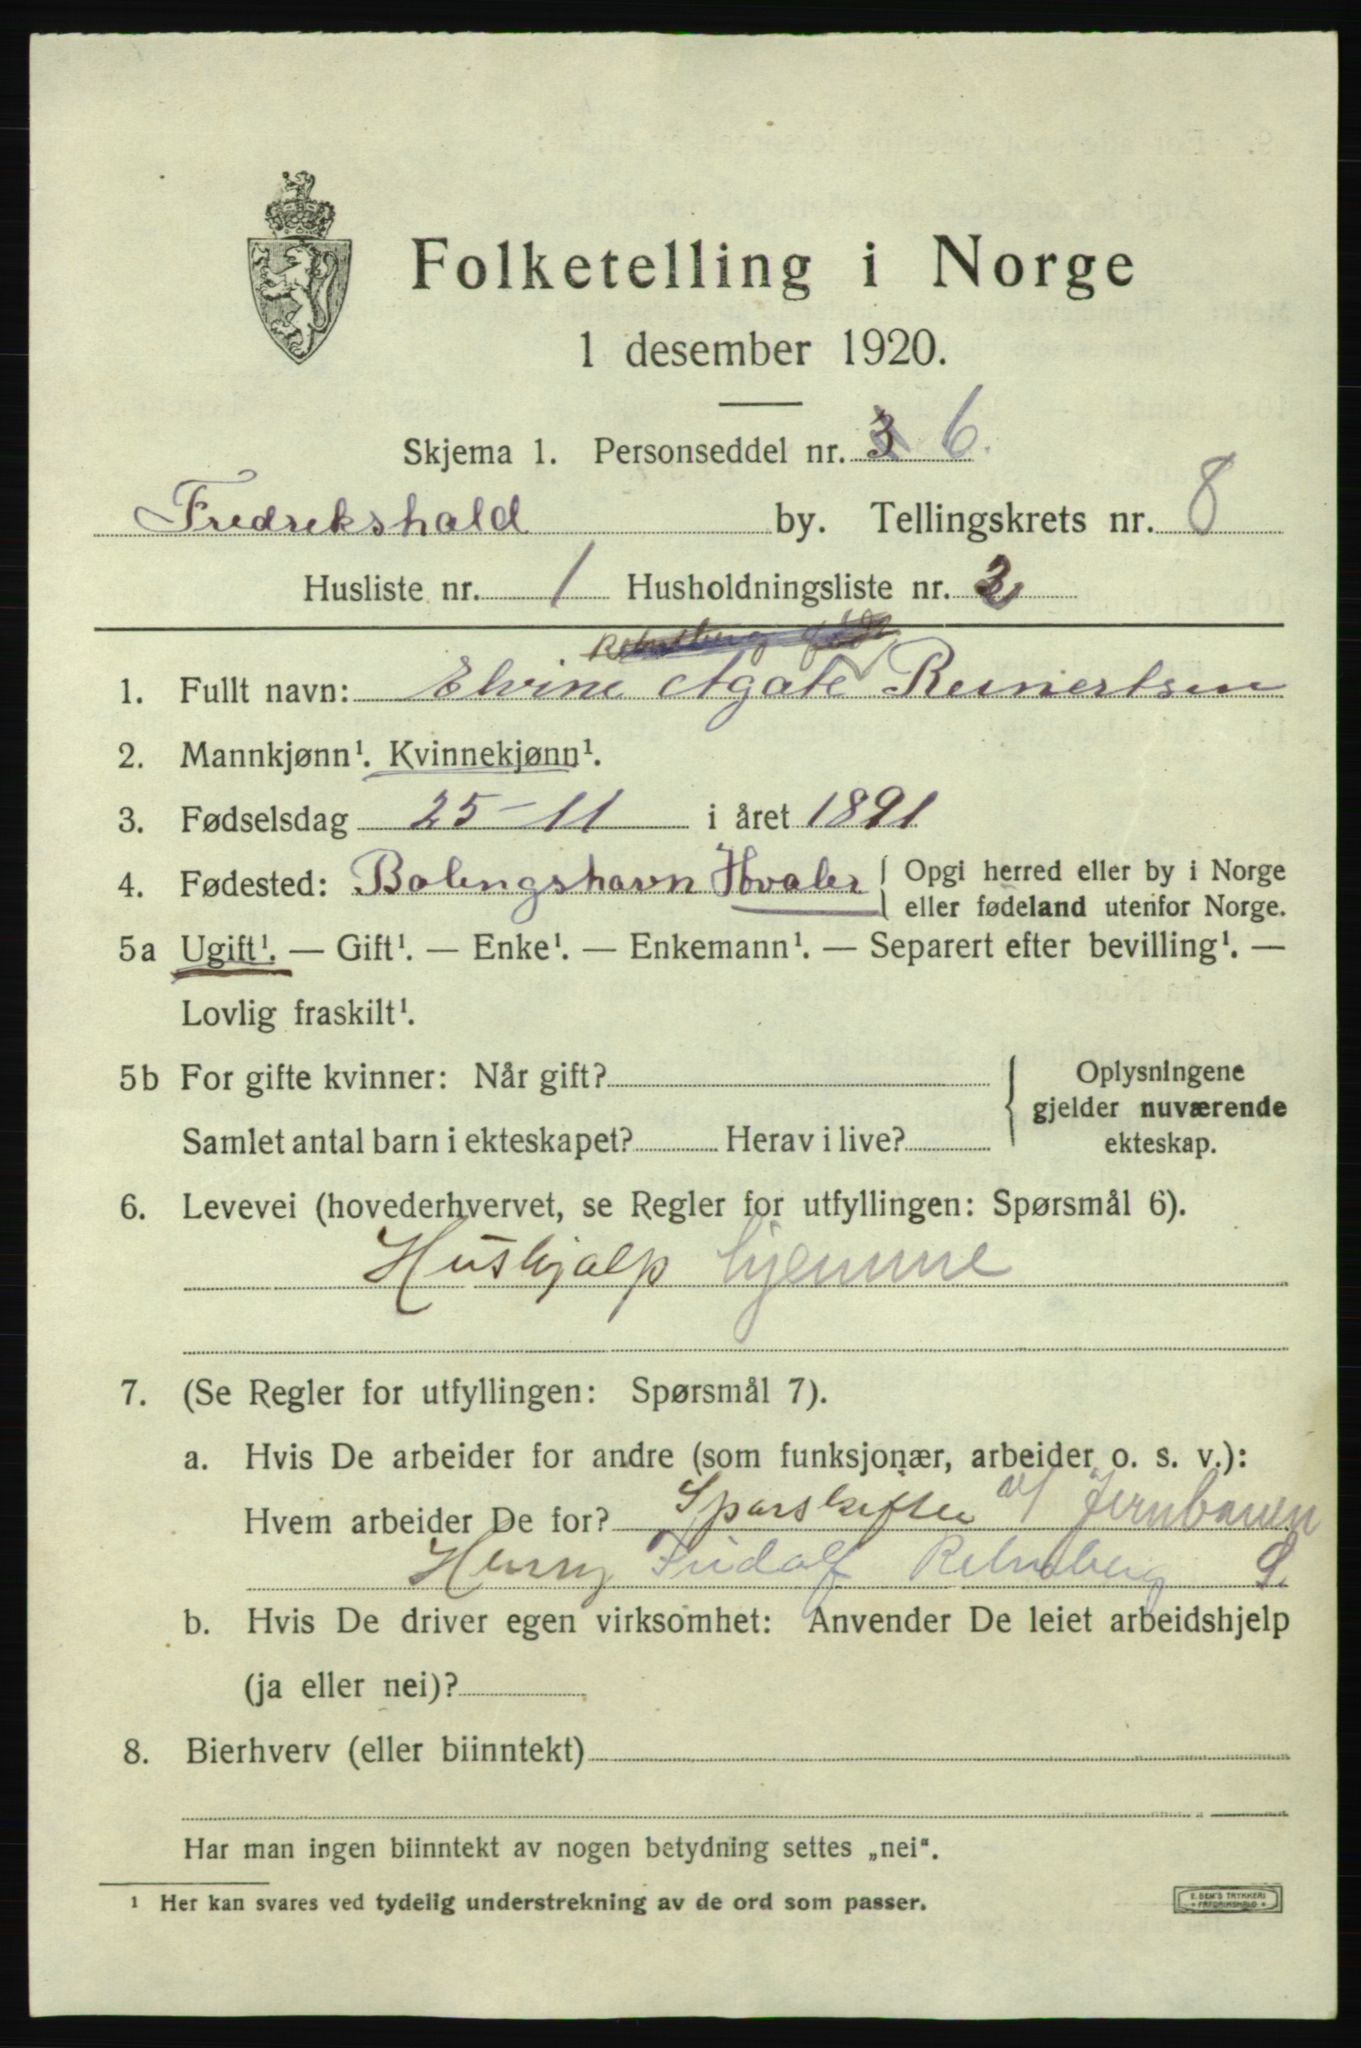 Folketelling i Norge
1 desember 1920.
Skjema 1. Personseddel nr. 3 6.
Fredrikshald by. Tellingskrets nr. 8
Husliste nr. 1 Husholdningsliste nr. 2
1. Fullt navn: Elvine Agate Reinertsen
2. Mannkjønn¹. Kvinnekjønn¹.
3. Fødselsdag 25-11 i året 1891
4. Fødested: Bølingshavn Hvaler { Opgi herred eller by i Norge
eller fødeland utenfor Norge.
5a Ugift¹. — Gift¹. — Enke¹. — Enkemann¹. — Separert efter bevilling¹. —
Lovlig fraskilt¹.
5b For gifte kvinner: Når gift?
Samlet antal barn i ekteskapet? Herav i live?
Oplysningene
gjelder nuværende
ekteskap.
6. Levevei (hovederhvervet, se Regler for utfyllingen: Spørsmål 6).
Hushjælp hjemme
7. (Se Regler for utfyllingen: Spørsmål 7).
a. Hvis De arbeider for andre (som funksjonær, arbeider o. s. v.):
Hvem arbeider De for? Sporskifter v/ Jernbanen
Henry Fridolf
b. Hvis De driver egen virksomhet: Anvender De leiet arbeidshjelp
(ja eller nei)?
8. Bierhverv (eller biinntekt)
Har man ingen biinntekt av nogen betydning settes „nei“.
¹ Her kan svares ved tydelig understrekning av de ord som passer.
E. SEM'S TRYKKERI
FREDRIKSHALD